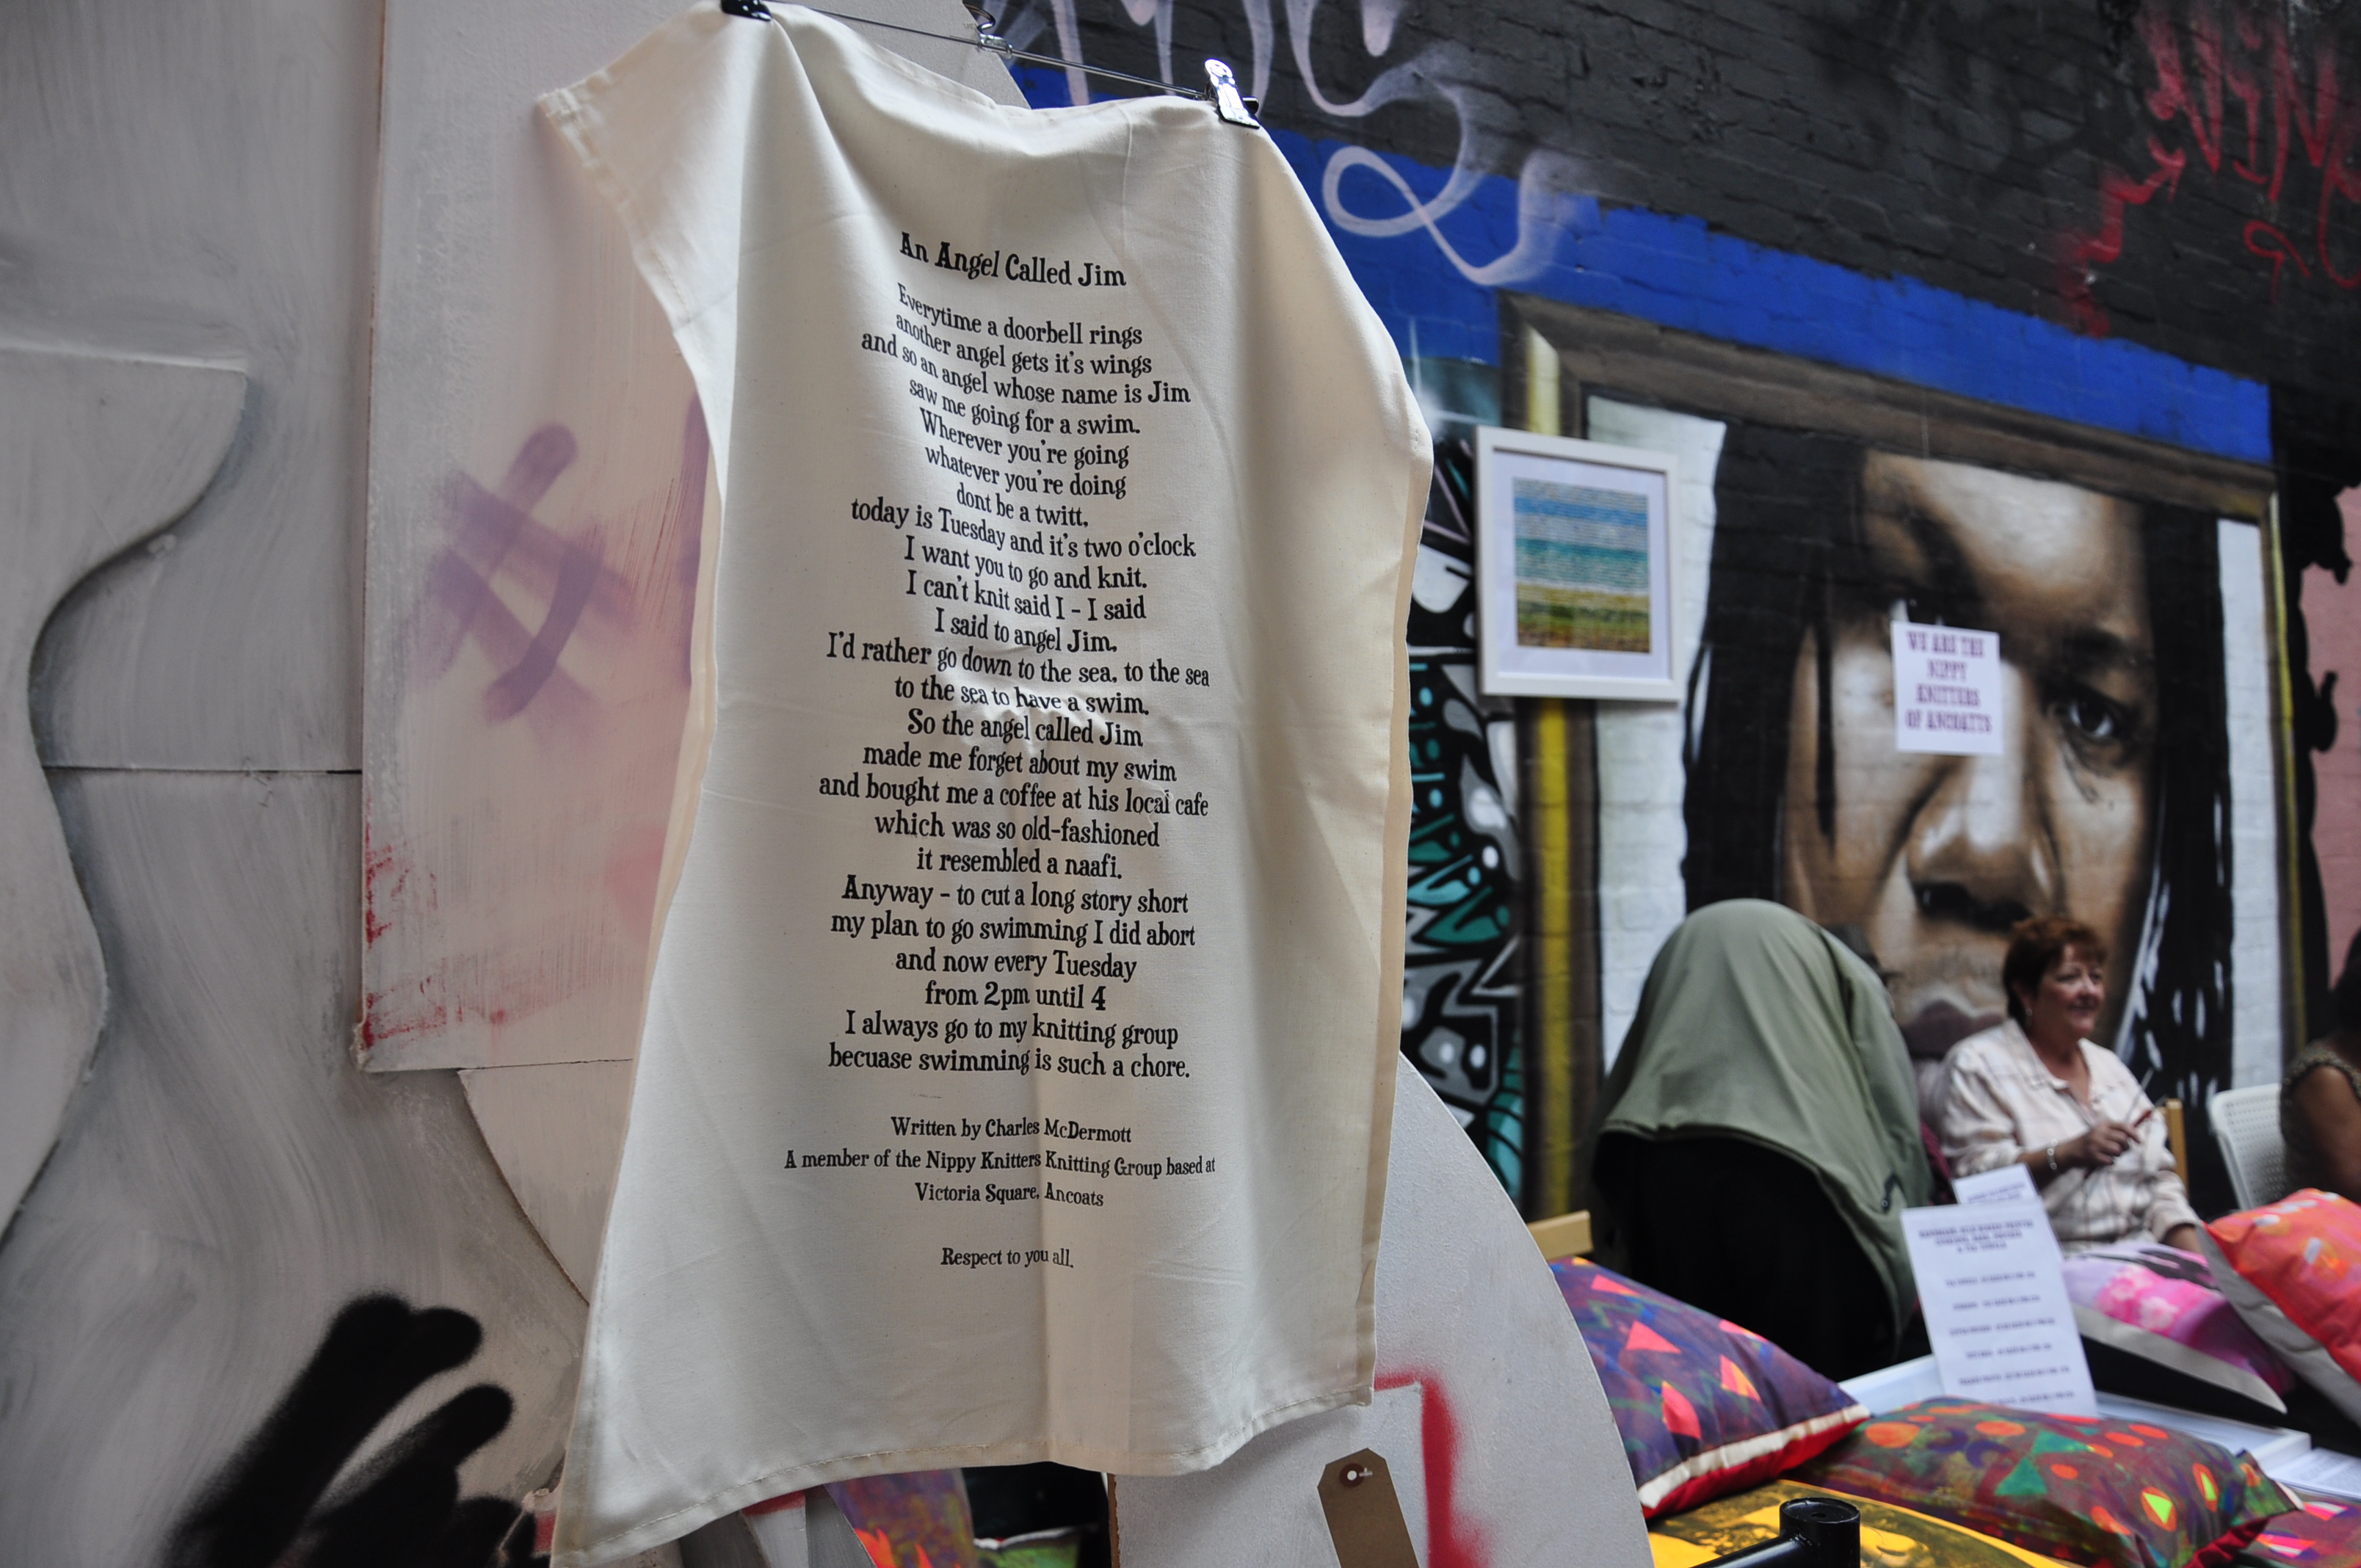 An Angel Called Jim
Everytime a doorbell rings
another angel gets it's wings
and so an angel whose name is Jim
saw me going for a swim.
Wherever you're going
whatever you're doing
dont be a twitt,
today is Tuesday and it's two o'clock
I want you to go and knit.
I can't knit said I - I said
I said to angel Jim,
I'd rather go down to the sea, to the sea
to the sea to have a swim.
So the angel called Jim
made me forget about my swim
and bought me a coffee at his local cafe
which was so old-fashioned
it resembled a naafi.
Anyway - to cut a long story short
my plan to go swimming I did abort
and now every Tuesday
from 2pm until 4
I always go to my knitting group
becuase swimming is such a chore.
Written by Charles McDermott
A member of the Nippy Knitters Knitting Group based at
Victoria Square, Ancoats
Respect to you all.
WE ARE THE
NIPPY
KNITTERS
OF ANCOATS